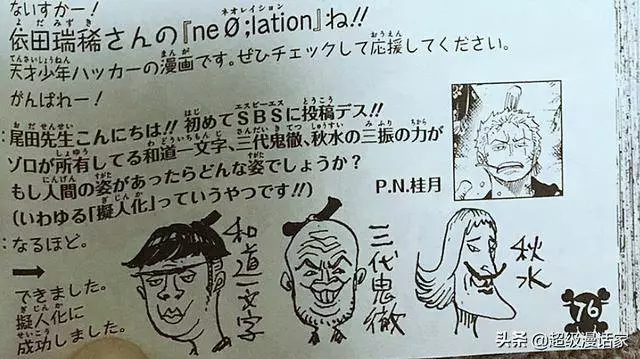 ないすかー!
依田瑞稀さんの『neØ;lation』ね!!
天才少年ハッカーの漫画です。ぜひチェックして応援してください。
がんばれー!
尾田先生こんにちは!! 初めてSBSに投稿デス!!
ゾロが所有してる和道一文字、三代鬼徹、秋水の三振の刀が
もし人間の姿があったらどんな姿でしょうか?
(いわゆる「擬人化」っていうやつです!!)
P.N.桂月
:なるほど。
→
できました。
擬人化に
成功しました。
和道一文字
三代鬼徹
秋水
76
头条 @超级漫话家